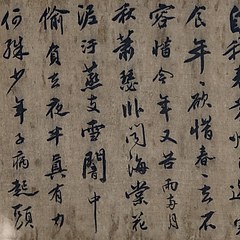 自我
食年年欲惜春春去不
容惜今年又苦雨兩月
秋蕭瑟臥聞海棠花
泥汙燕支雪闇中
偷負去夜半真有力
何殊少年子病起頭